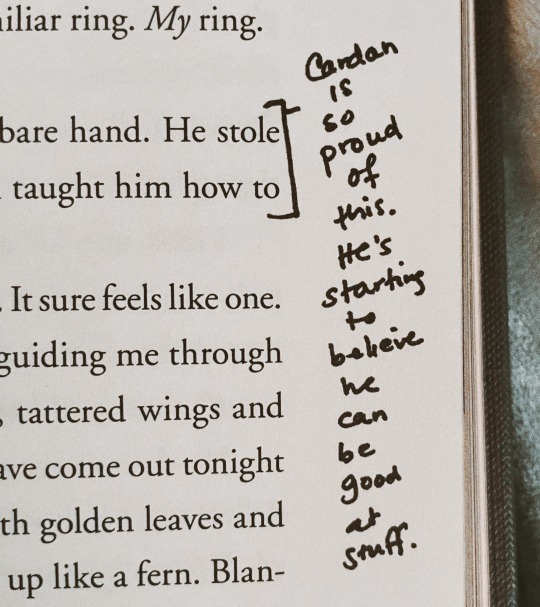 iliar ring. My ring.
bare hand. He stole
taught him how to
. It sure feels like one.
guiding me through
, tattered wings and
ave come out tonight
th golden leaves and
up like a fern. Blan-
Cardan
is
so
proud
of
this.
He's
starting
to
believe
he
can
be
good
at
stuff.